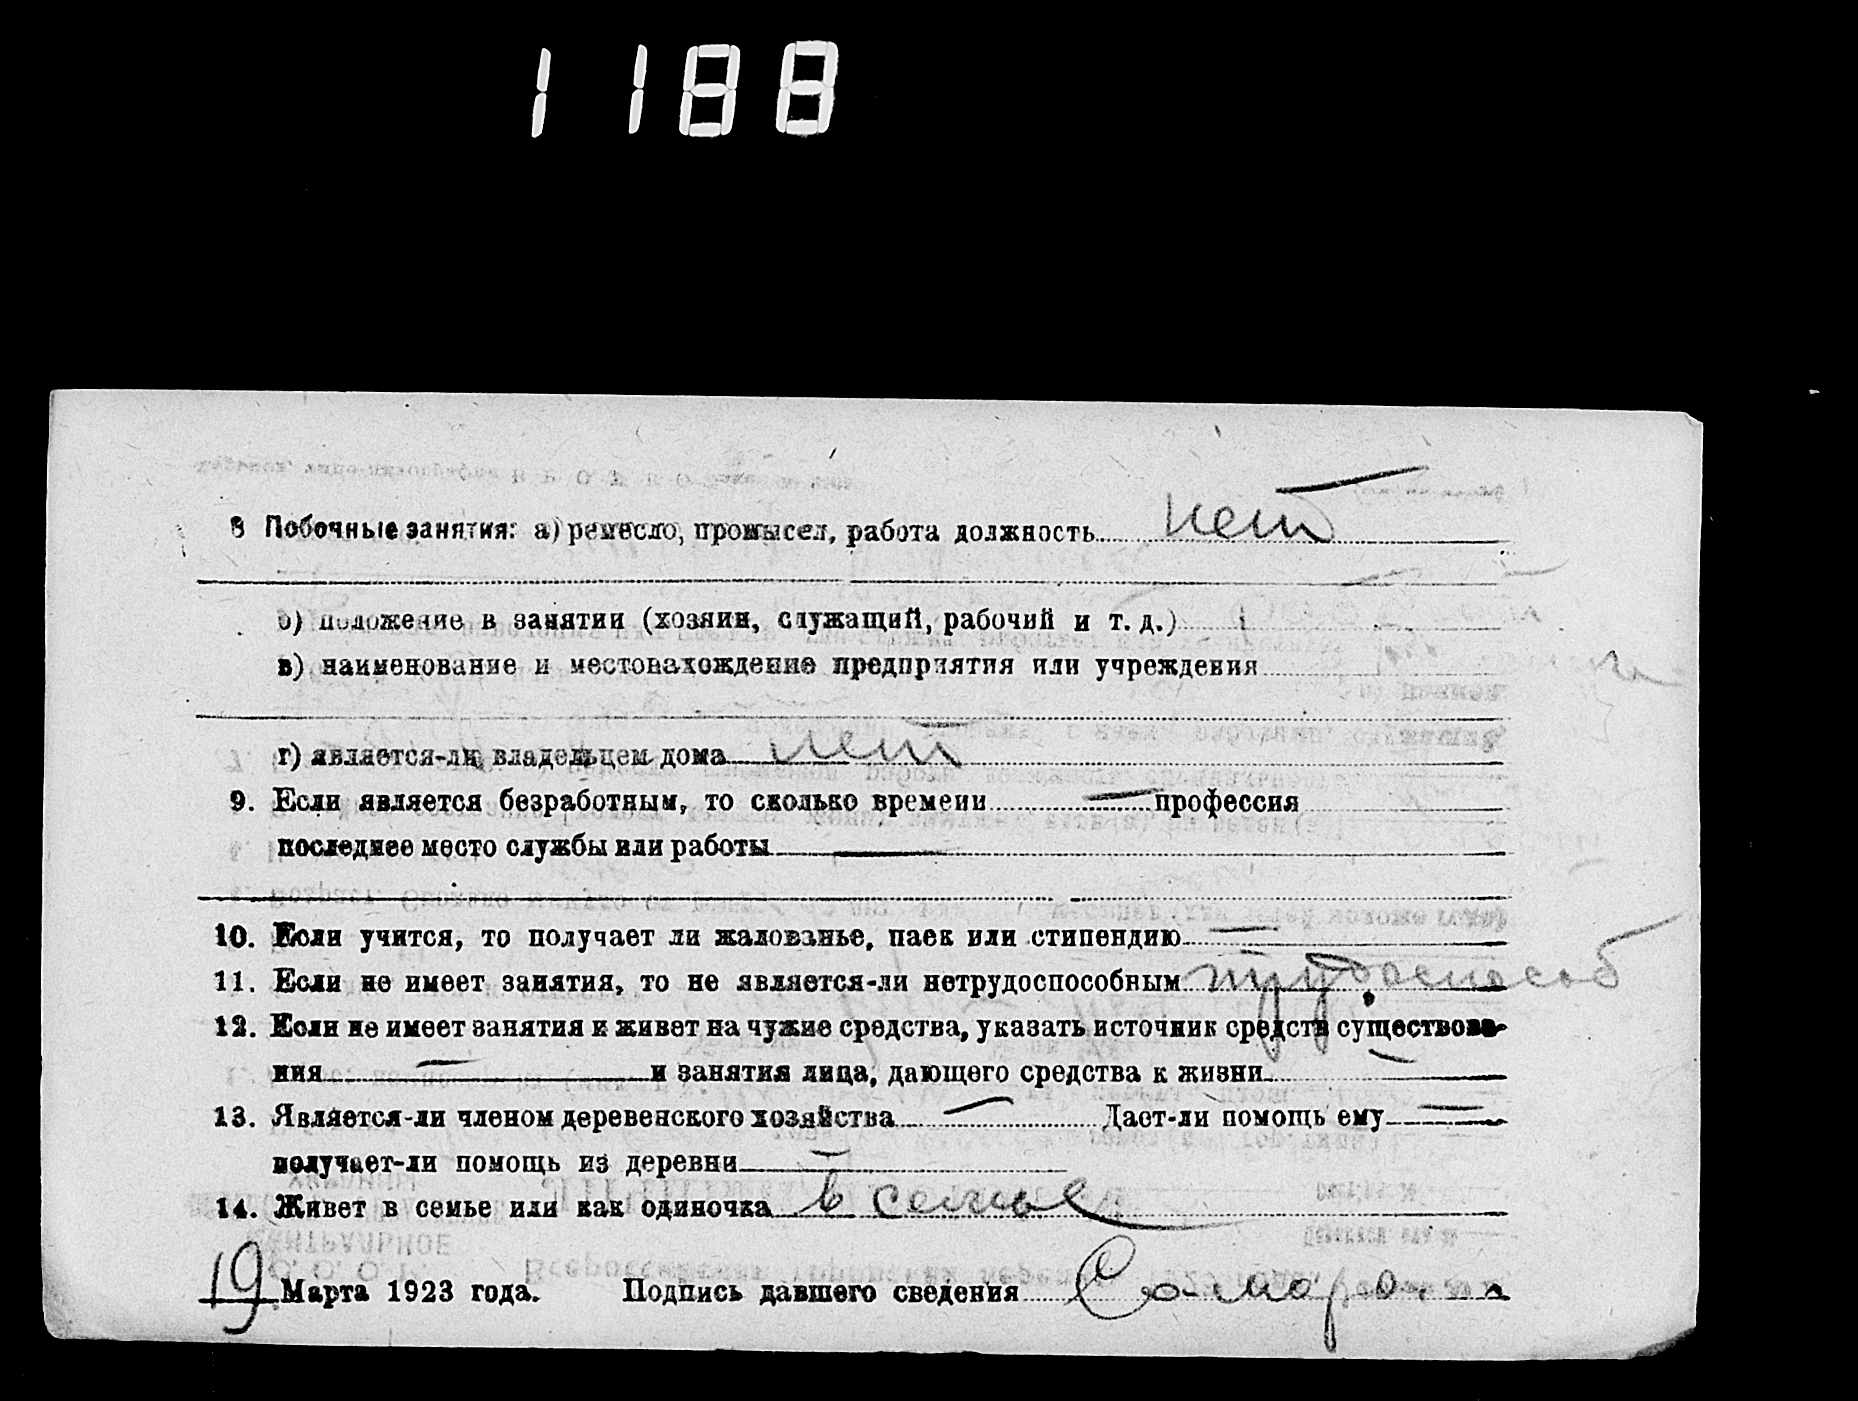 1188
8 Побочные занятия: а) ремесло, промысел, работа должность нет
б) положение в занятии (хозяин, служащий, рабочий и т. д.)
в) наименование и местонахождение предприятия или учреждения
г) является-ли владельцем дома нет
9. Если является безработным, то сколько времени — профессия
последнее место службы или работы —
10. Если учится, то получает ли жалованье, паек или стипендию —
11. Если не имеет занятия, то не является-ли нетрудоспособным трудоспособ
12. Если не имеет занятия и живет на чужие средства, указать источник средств существова-
ния — и занятия лица, дающего средства к жизни —
13. Является-ли членом деревенского хозяйства — Дает-ли помощь ему —
получает-ли помощь из деревни —
14. Живет в семье или как одиночка в семье
19 Марта 1923 года. Подпись давшего сведения